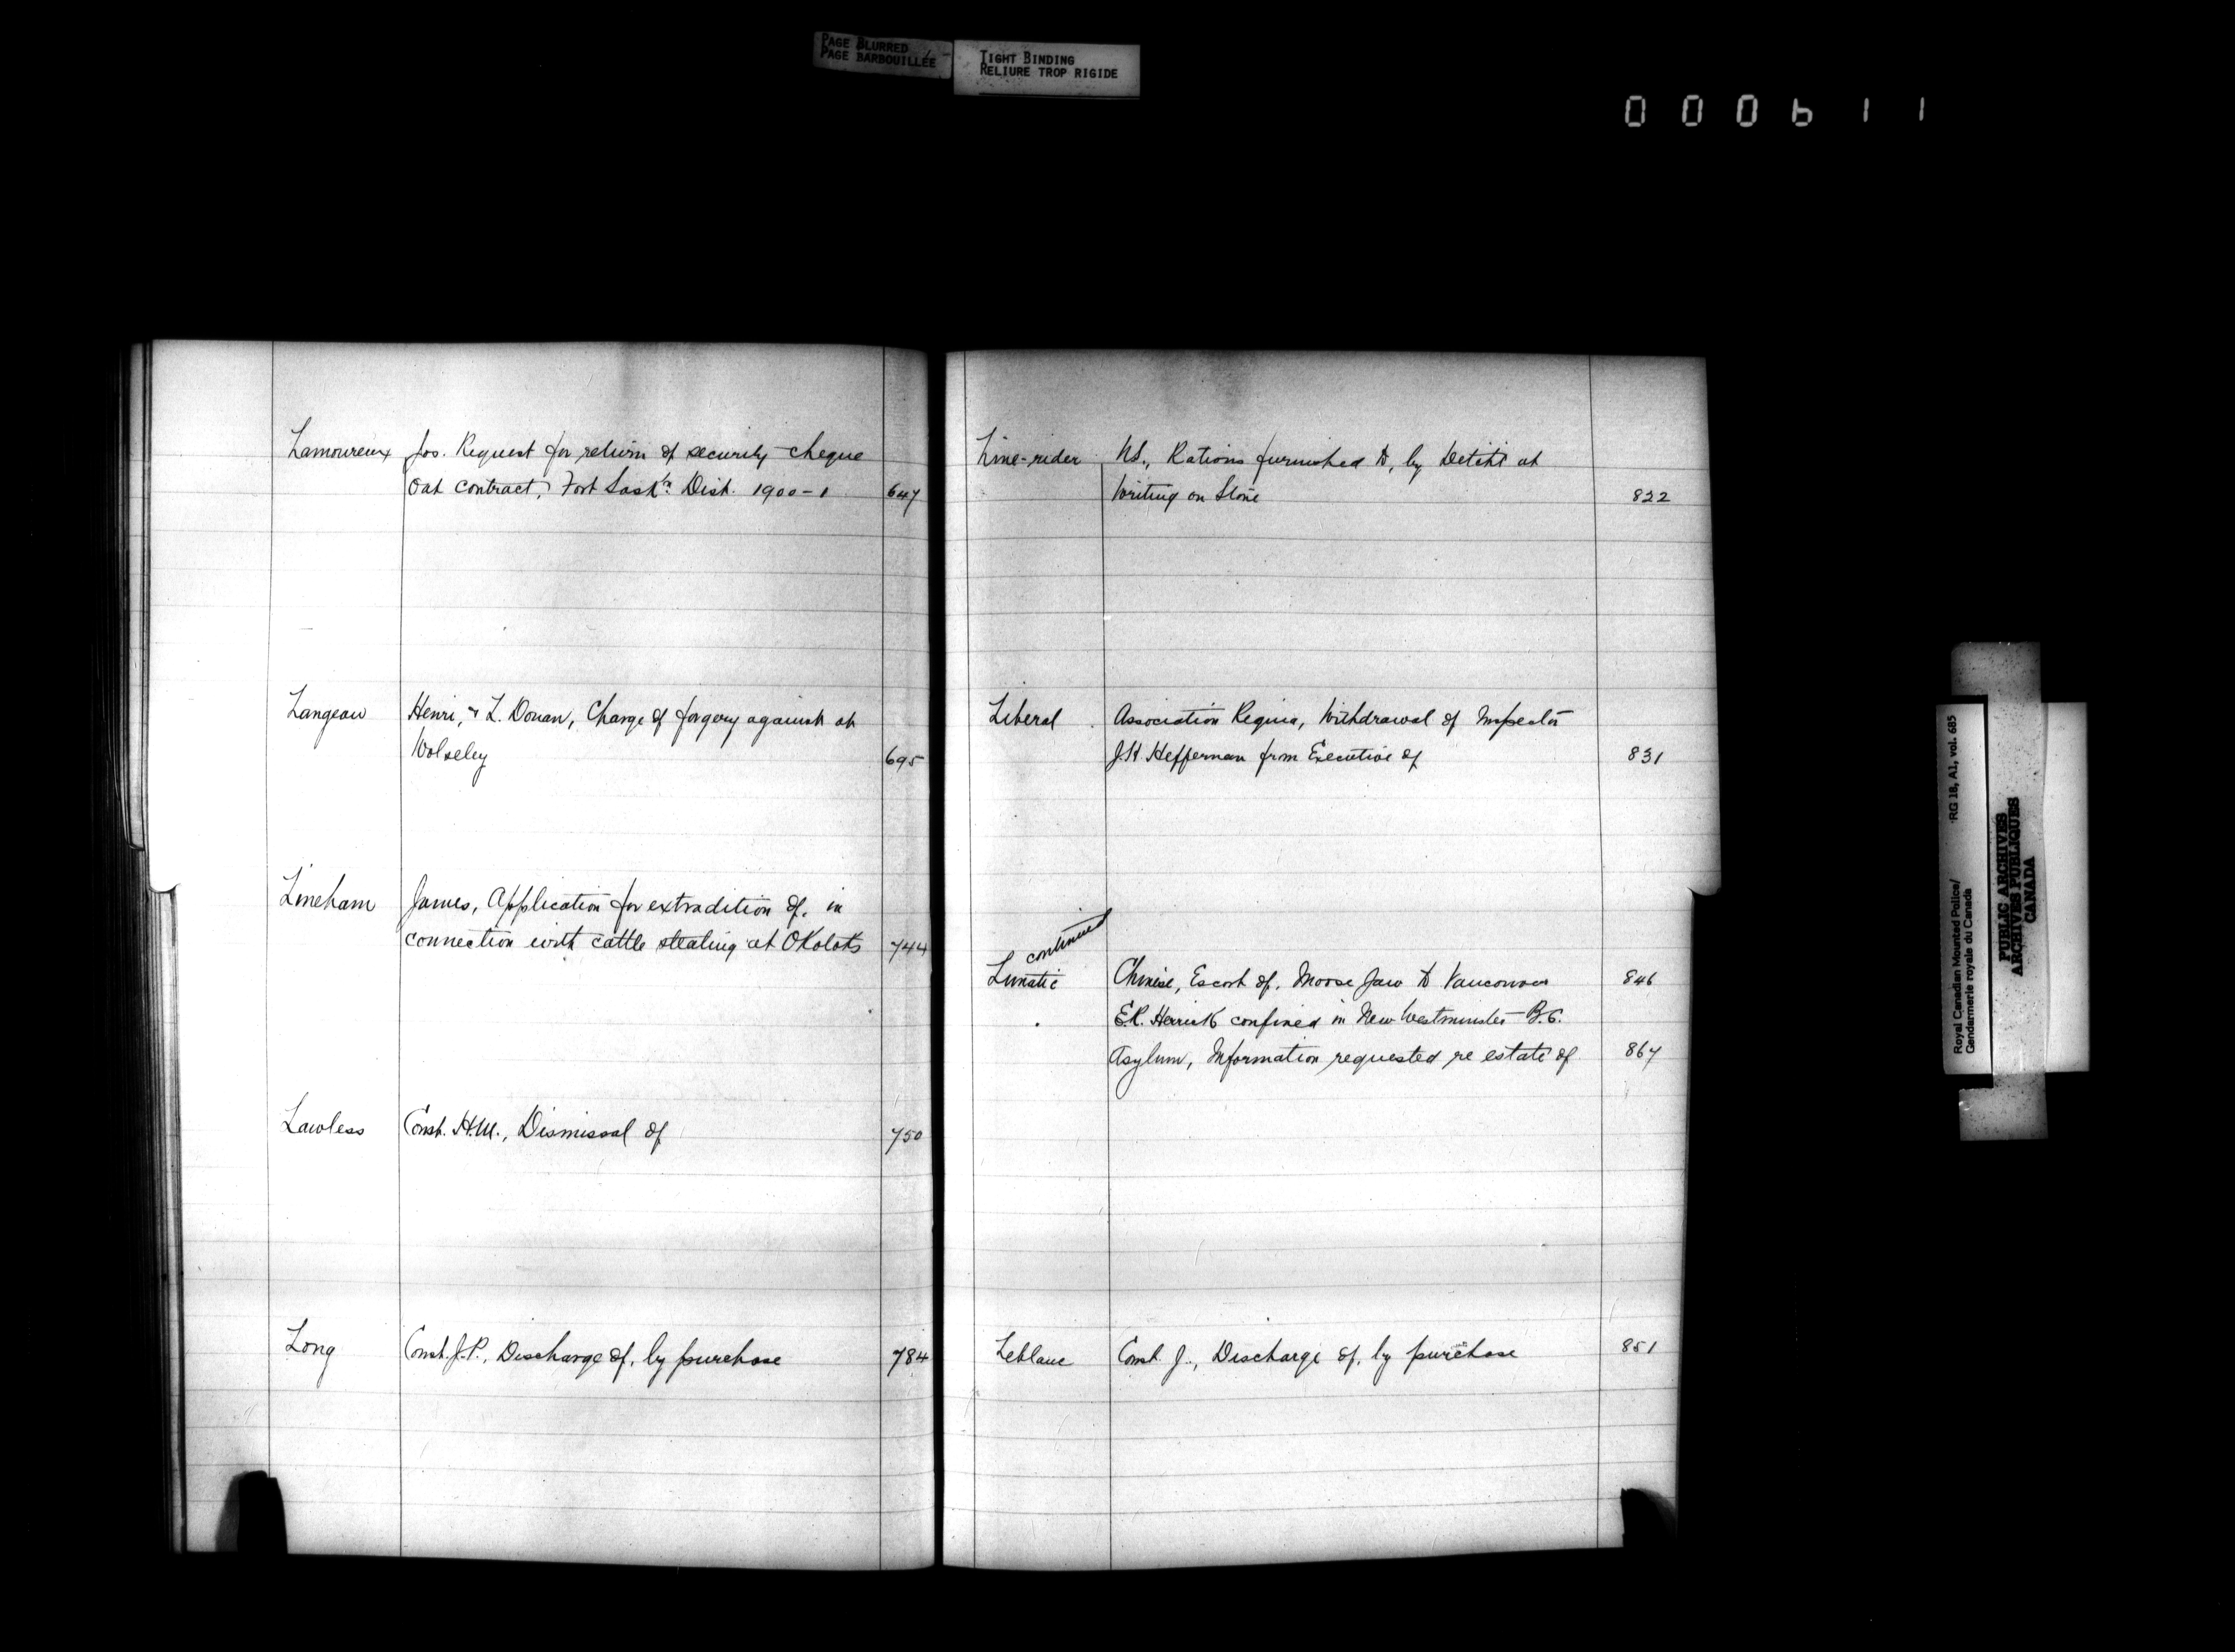 PAGE BLURRED
PAGE BARBOUILLÉE
TIGHT BINDING
RELIURE TROP RIGIDE
000611
Lamoureux Jos. Request for return of security cheque
Oat contract, Fort Sask'n Dist. 1900-1 647
Langeau Henri, & L. Donan, Charge of forgery against at
Wolseley 695
Lineham James, Application for extradition of, in
connection with cattle stealing at Okotoks 744
Lawless Const. H.M., Dismissal of 750
Long Const. J.P., Discharge of, by purchase 784
Line-rider U.S., Rations furnished to, by Detch't at
Writing on Stone 822
Liberal Association Regina, Withdrawal of Inspector
J.H. Heffernan from Executive of 831
continued
Lunatic Chinese, Escort of, Moose Jaw to Vancouver 846
E.R. Herrick confined in New Westminster B.C.
Asylum, Information requested re estate of 867
Leblanc Const. J., Discharge of, by purchase 851
Royal Canadian Mounted Police/ RG 18, A1, vol. 685
Gendarmerie royale du Canada
PUBLIC ARCHIVES
ARCHIVES PUBLIQUES
CANADA